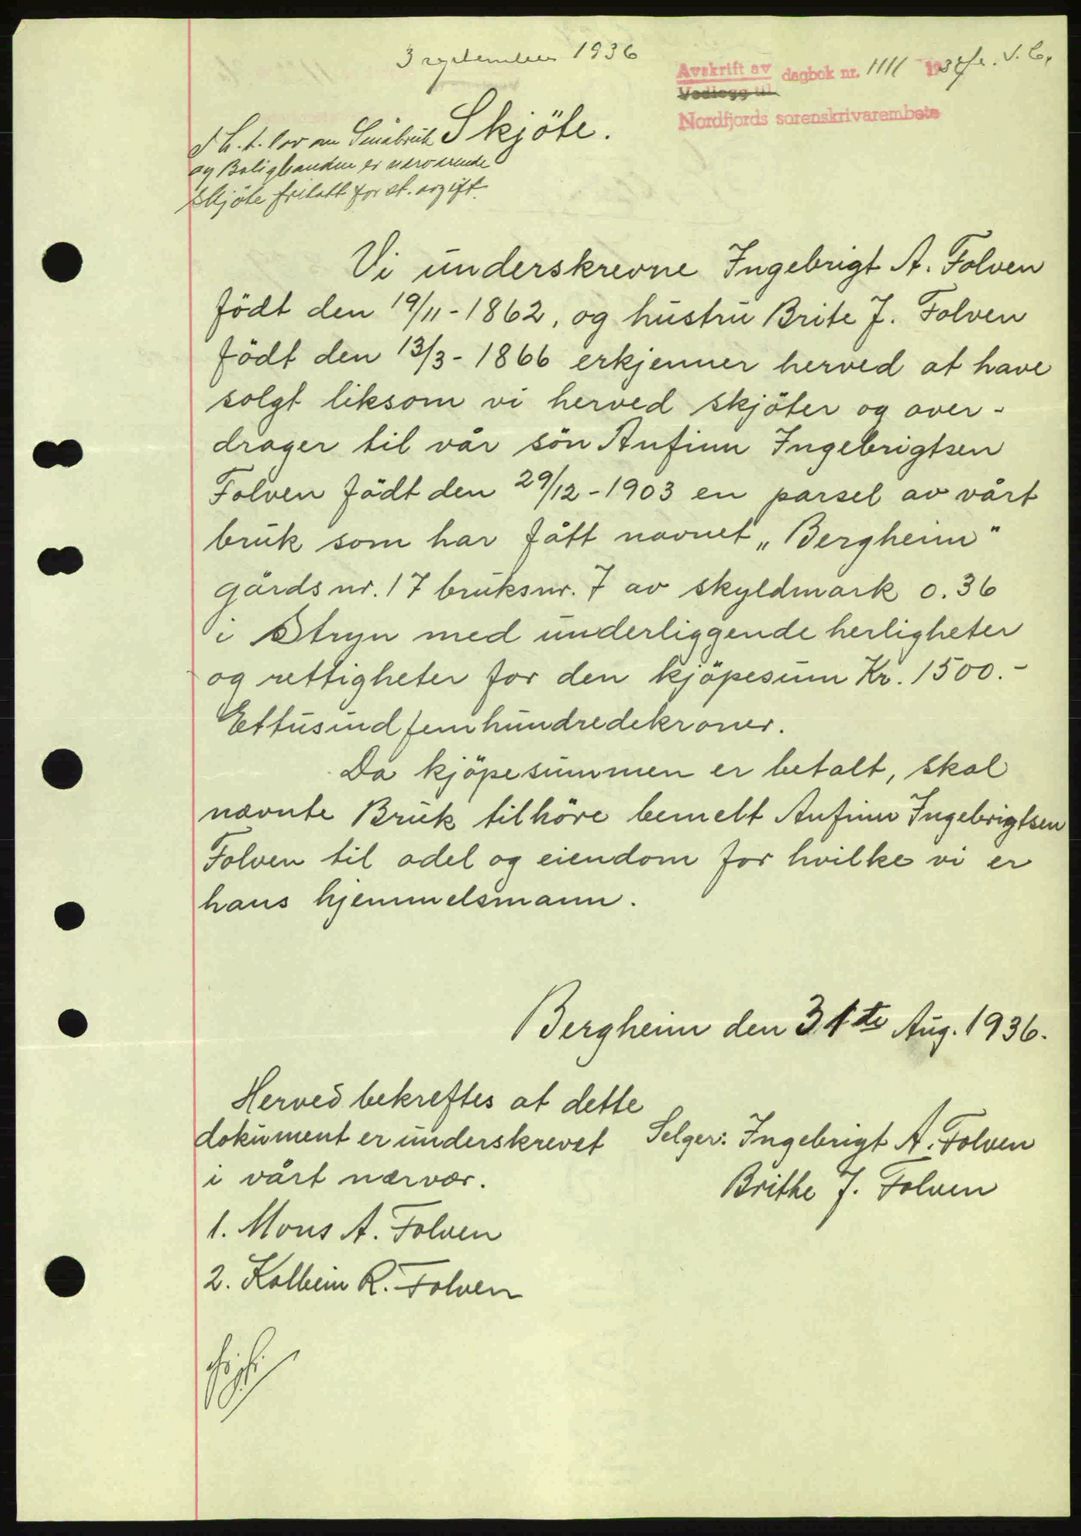 3 september 1936
Avskrift av dagbok nr. 1111 1936
Vedlegg til
Nordfjords sorenskrivarembete
Skjöte.
I h. t. lov om Småbruk
og Boligbanken er nærværende
skjöte fritatt for st. avgift.
Vi underskrevne Ingebrigt A. Folven
födt den 19/11-1862, og hustru Brite J. Folven
födt den 13/3-1866 erkjenner herved at have
solgt liksom vi herved skjöter og over-
drager til vår sön Anfinn Ingebrigtsen
Folven födt den 29/12-1903 en parsel av vårt
bruk som har fått navnet „Bergheim"
gårdsnr. 17 bruksnr. 7 av skyldmark 0.36
i Stryn med underliggende herligheter
og rettigheter for den kjöpesum Kr. 1500.-
Ettusindfemhundredekroner.
Da kjöpesummen er betalt, skal
nævnte Bruk tilhöre bemelt Anfinn Ingebrigtsen
Folven til odel og eiendom for hvilke vi er
hans hjemmelsmann.
Bergheim den 31te Aug. 1936.
Herved bekreftes at dette
dokument er underskrevet
i vårt nærvær.
1. Mons A. Folven
2. Kolbein R. Folven
Selger: Ingebrigt A. Folven
Brithe J. Folven